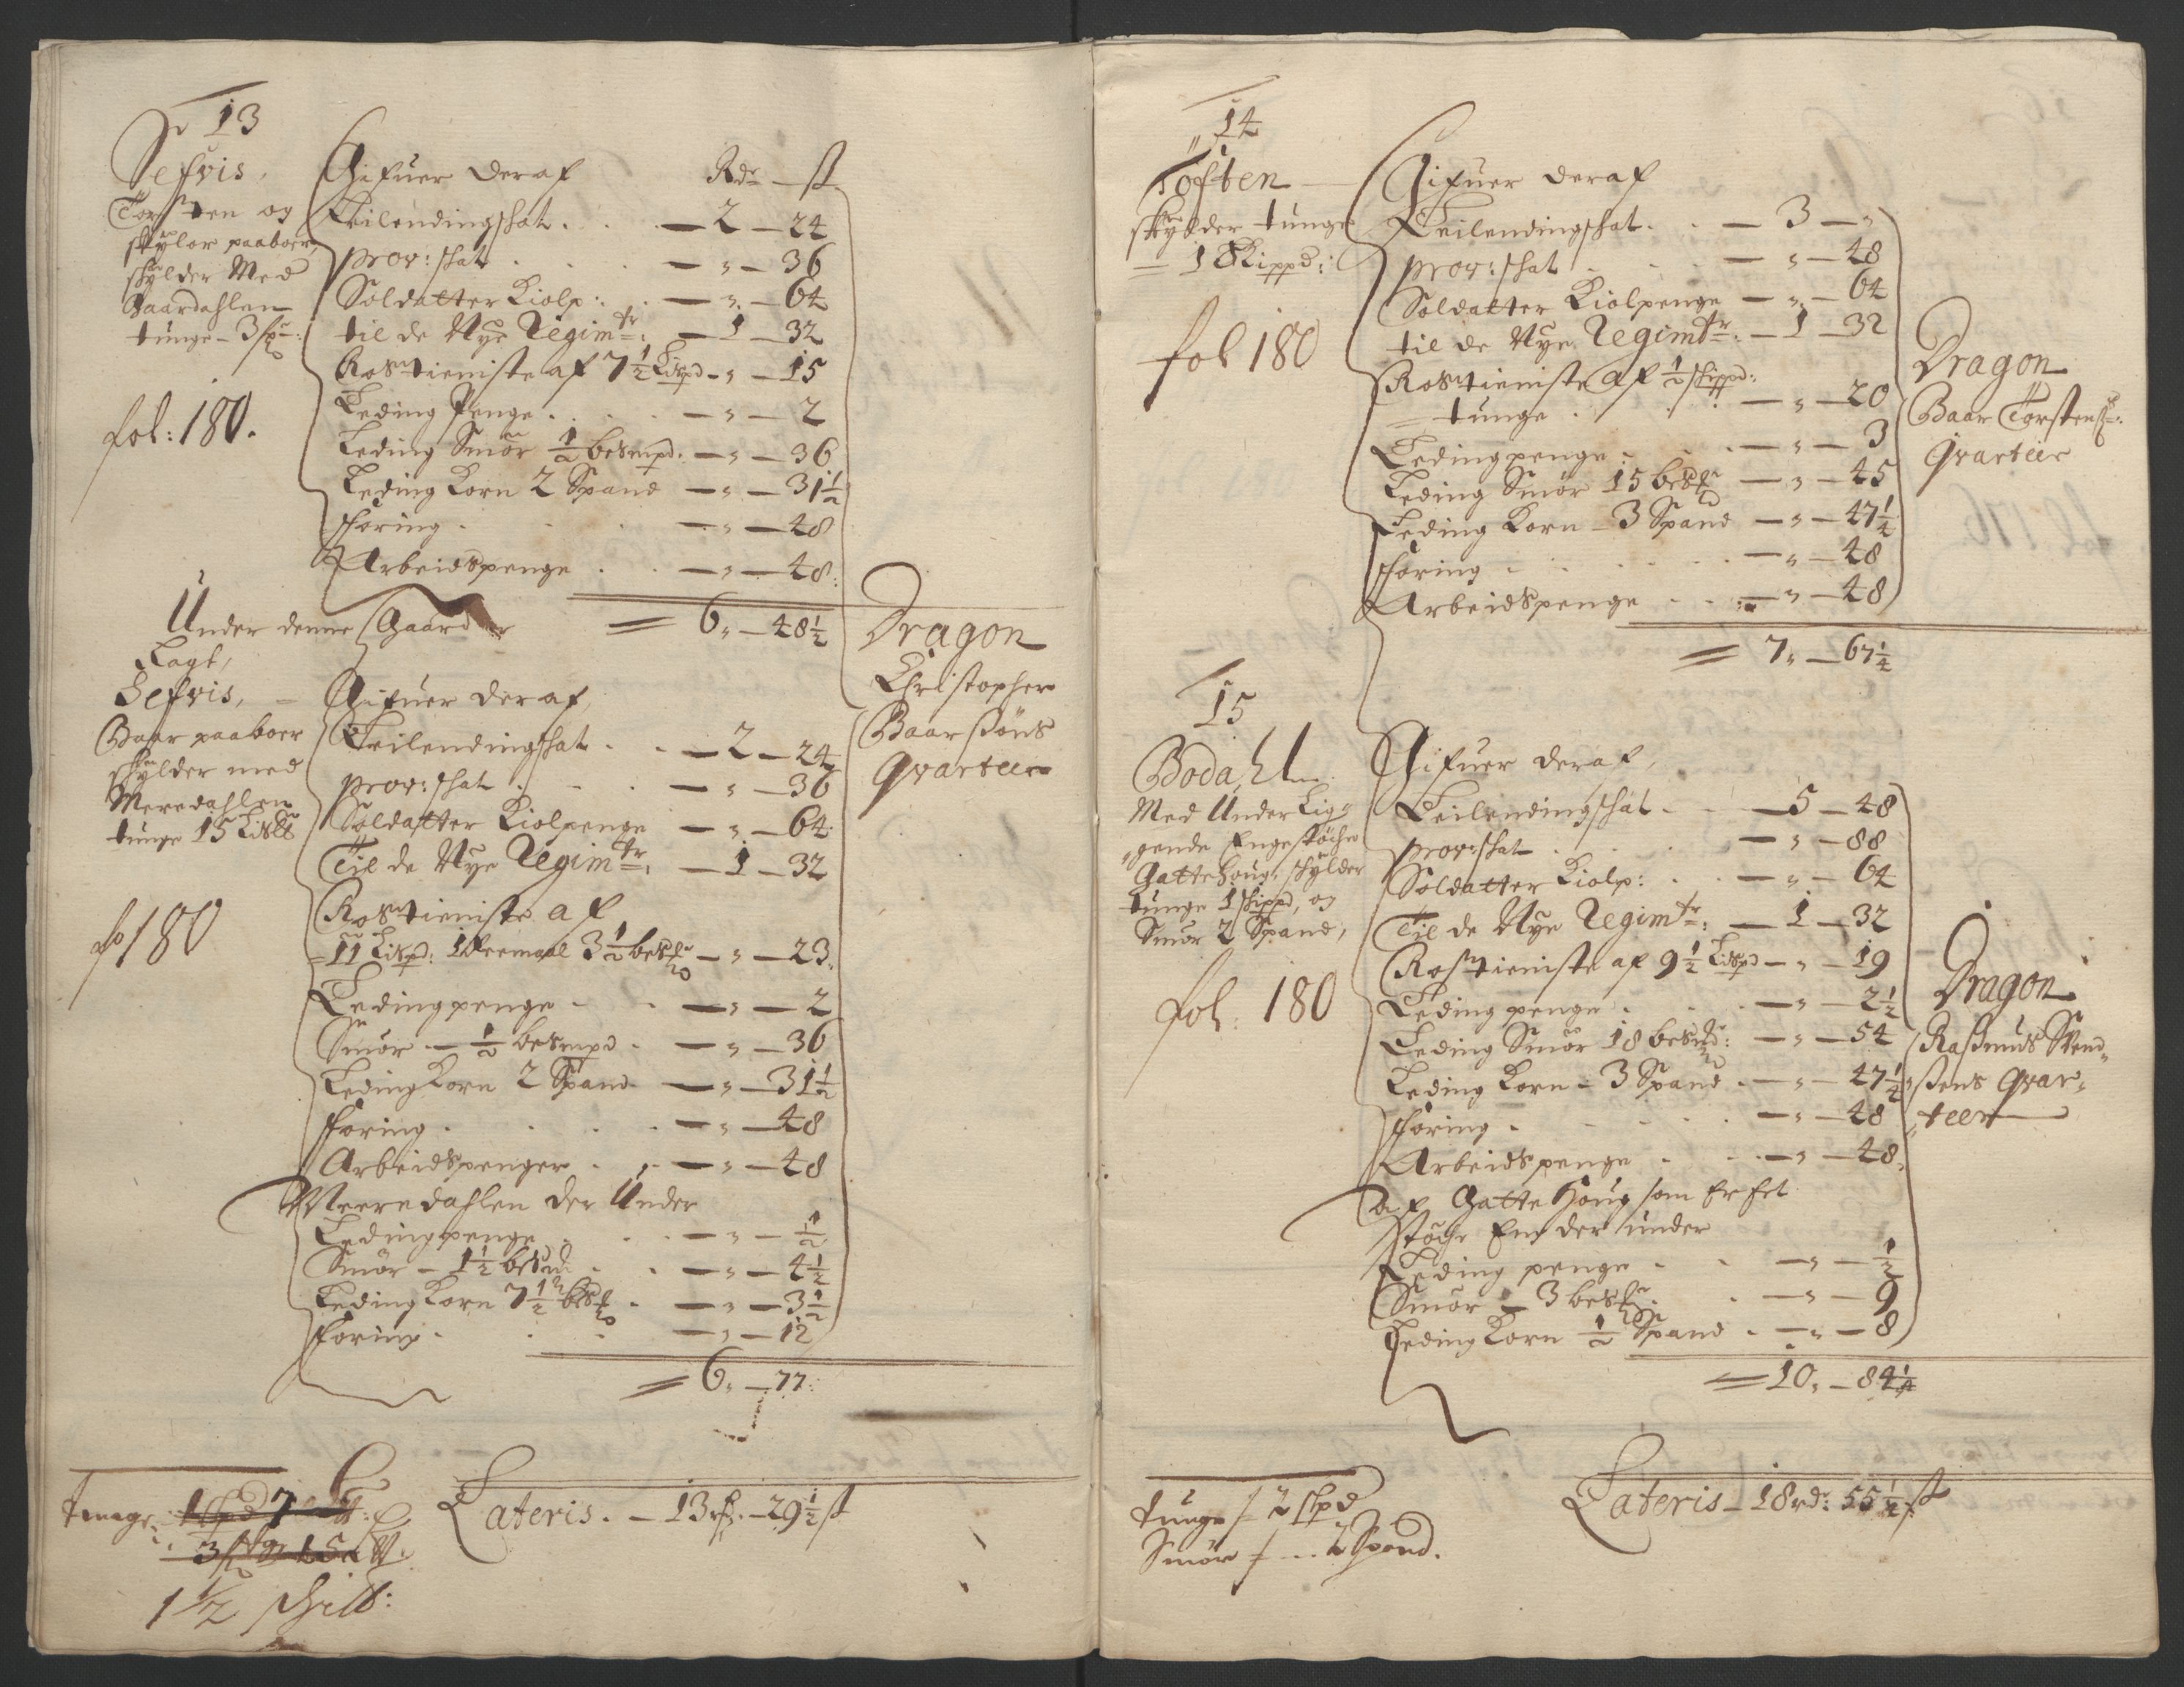 13
Sefvis,
Torsten og
skylar paaboer,
skylder Med
Gaardahlen
tunge – 3 sp:
fol: 180.
Gifuer deraf Rdr – ß
Leilendingschat . . — 2 — 24
prov: schat . . — " — 36
Soldatter Kiolp: . — " — 64
til de Nye Regimtr: — 1 — 32
Rostieniste af 7½ Lispd — " — 15
Leding Penge . . . — " — 2
Leding Smör ½ besmpd: — " — 36
Leding Korn 2 Spand — " — 31½
foring . . . — " — 48
Arbeidspenge . . — " — 48:
= 6 " — 48½
Dragon
Christopher
Baarsöns
qvarteer
Under denne Gaard er
Lagt,
Sefvis, —
Baar paaboer
skylder med
Meredahlen
tunge 15 Lis℔
fo 180
Gifuer deraf,
Leilendingschat . . — 2 — 24
prov: schat . . . — " — 36
Soldatter Kiolpenge — " — 64
Til de Nye Regimtr: — 1 — 32
Rostieniste af
11 Lispd: 1 Kremaal 3½ — " — 23.
Ledingpenge . . — " — 2
Smör — ½ besmpd . — " — 36
Leding Korn 2 Spand — " — 31½
foring . . . . — " — 48
Arbeidspenger . . — " — 48
Meeredahlen der Under
Ledingpenge . . — " — ½
Smör – 1½ . . — " — 4½
Leding Korn 7½ . — " — 3½
foring . . . — " — 12
= 6 " — 77:
Tunge:
1½ schilb:
Lateris. — 13 — 29½ ß
14
Töften
skylder tunge
— 1 Skippd:
fol 180
Gifuer deraf
Leilendingschat . . — 3 — "
prov: schat . . . — " — 48
Soldatter Kiolpenge — " — 64
til de Nye Regimtr: — 1 — 32
Rostieniste af ½ skippd:
= tunge . . . — " — 20
Ledingpenge . . . — " — 3
Leding Smör 15 — " — 45
Leding Korn – 3 Spand — " — 47¼
foring . . . . — " — 48
Arbeidspenge . . — " — 48
= 7 " — 67¼
Dragon
Baar Torstens:
qvarteer
15
Bodahl
Med Under Lig-
gende Engestöche
Gattehoug: skylder
tunge 1 skippd, og
Smör 2 Spand,
fol: 180
Gifuer deraf,
Leilendingschat . — 5 — 48
prov: schat . . . — " — 88
Soldatter Kiolp: . . — " — 64
Til de Nye Regimtr: — 1 — 32
Rostieniste af 9½ Lispd — " — 19
Leding penge . . . — " — 2½
Leding Smör 18 — " — 54
Leding Korn – 3 Spand . — " — 47¼
foring . . . . . — " — 48
Arbeidspenge . . . — " — 48.
af Gatte Houg som Er Eet
stöche Eng der under
Leding penge . . — " — ½
Smör — 3 . — " — 9
Leding Korn ½ Spand . — " — 8
= 10 " — 84¼
Dragon
Rasmus Svend-
sens qvar-
teer
tunge / 2 skpd
Smör / . . 2 Spand.
Lateris – 18 rdr: 55½ ß